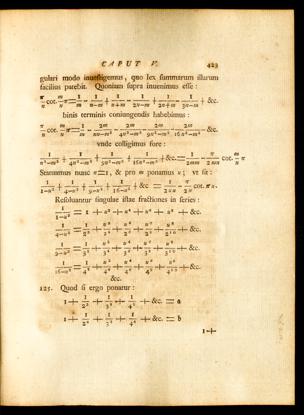 CAPUT V. 423
gulari modo inuestigemus, quo lex summarum illarum
facilius patebit. Quonium supra inuenimus esse :
π/n cot. m/n π = 1/m − 1/(n−m) + 1/(n+m) − 1/(2n−m) + 1/(2n+m) − 1/(3n−m) + &c.
binis terminis coniungendis habebimus :
π/n cot. m/n π = 1/m − 2m/(nn−m²) − 2m/(4n²−m²) − 2m/(9n²−m²) − 2m/(16n²−m²) − &c.
vnde colligimus fore :
1/(n²−m²) + 1/(4n²−m²) + 1/(9n²−m²) + 1/(16n²−m²) + &c. = 1/2mm − π/2mn cot. m/n π
Statuamus nunc n = 1, & pro m ponamus u ; vt sit :
1/(1−u²) + 1/(4−u²) + 1/(9−u²) + 1/(16−u²) + &c = 1/2uu − π/2u cot. πu.
Resoluantur singulae istae fractiones in series :
1/(1−u²) = 1 + u² + u⁴ + u⁶ + u⁸ + &c.
1/(4−u²) = 1/2² + u²/2⁴ + u⁴/2⁶ + u⁶/2⁸ + u⁸/2¹⁰ + &c.
1/(9−u²) = 1/3² + u²/3⁴ + u⁴/3⁶ + u⁶/3⁸ + u⁸/3¹⁰ + &c.
1/(16−u²) = 1/4² + u²/4⁴ + u⁴/4⁶ + u⁶/4⁸ + u⁸/4¹⁰ + &c.
&c.
125. Quod si ergo ponatur :
1 + 1/2² + 1/3² + 1/4² + &c. = a
1 + 1/2⁴ + 1/3⁴ + 1/4⁴ + &c. = b
1 +